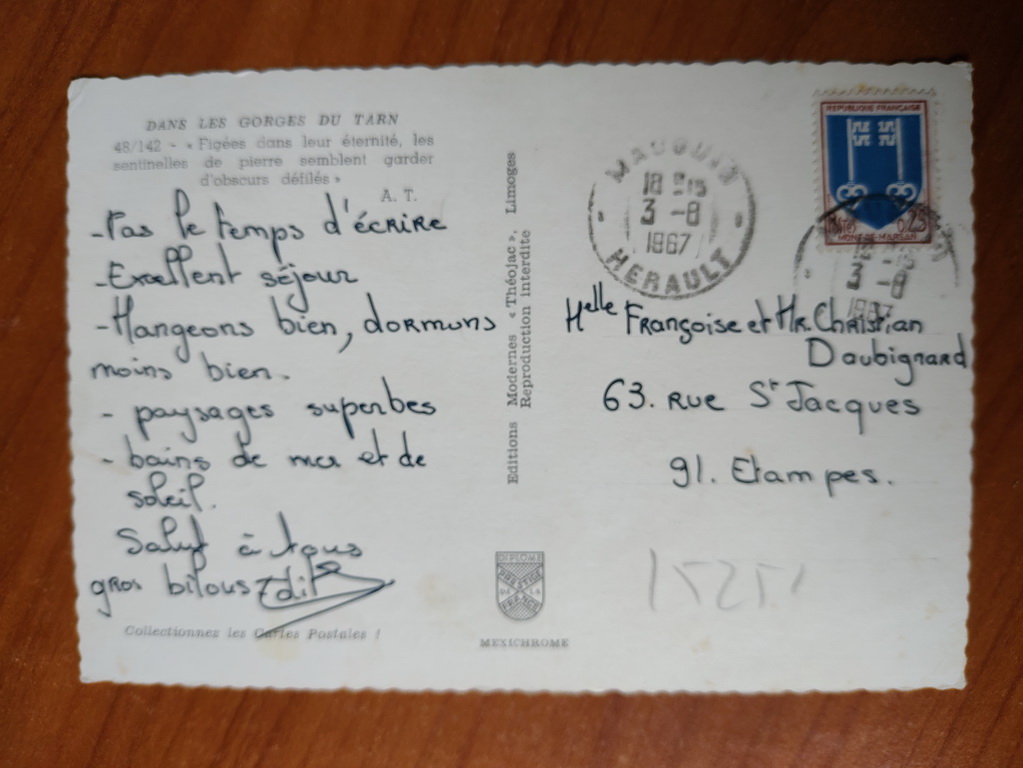 DANS LES GORGES DU TARN
48/142 - « Figées dans leur éternité, les
sentinelles de pierre semblent garder
d'obscurs défilés »
A. T.
- Pas le temps d'écrire
- Excellent séjour
- Mangeons bien, dormons
moins bien.
- paysages superbes
- bains de mer et de
soleil.
Salut à tous
gros bilous
Collectionnez les Cartes Postales !
Editions Modernes « Théojac », Limoges
Reproduction interdite
DIPLOME
PRESTIGE
DE LA
FRANCE
MEXICHROME
MAUGUIO
3 -8
1967
HERAULT
REPUBLIQUE FRANÇAISE
0,25
MONT-DE-MARSAN
3 -8
Melle Françoise et Mr. Christian
Daubignard
63. Rue St Jacques
91. Etampes.